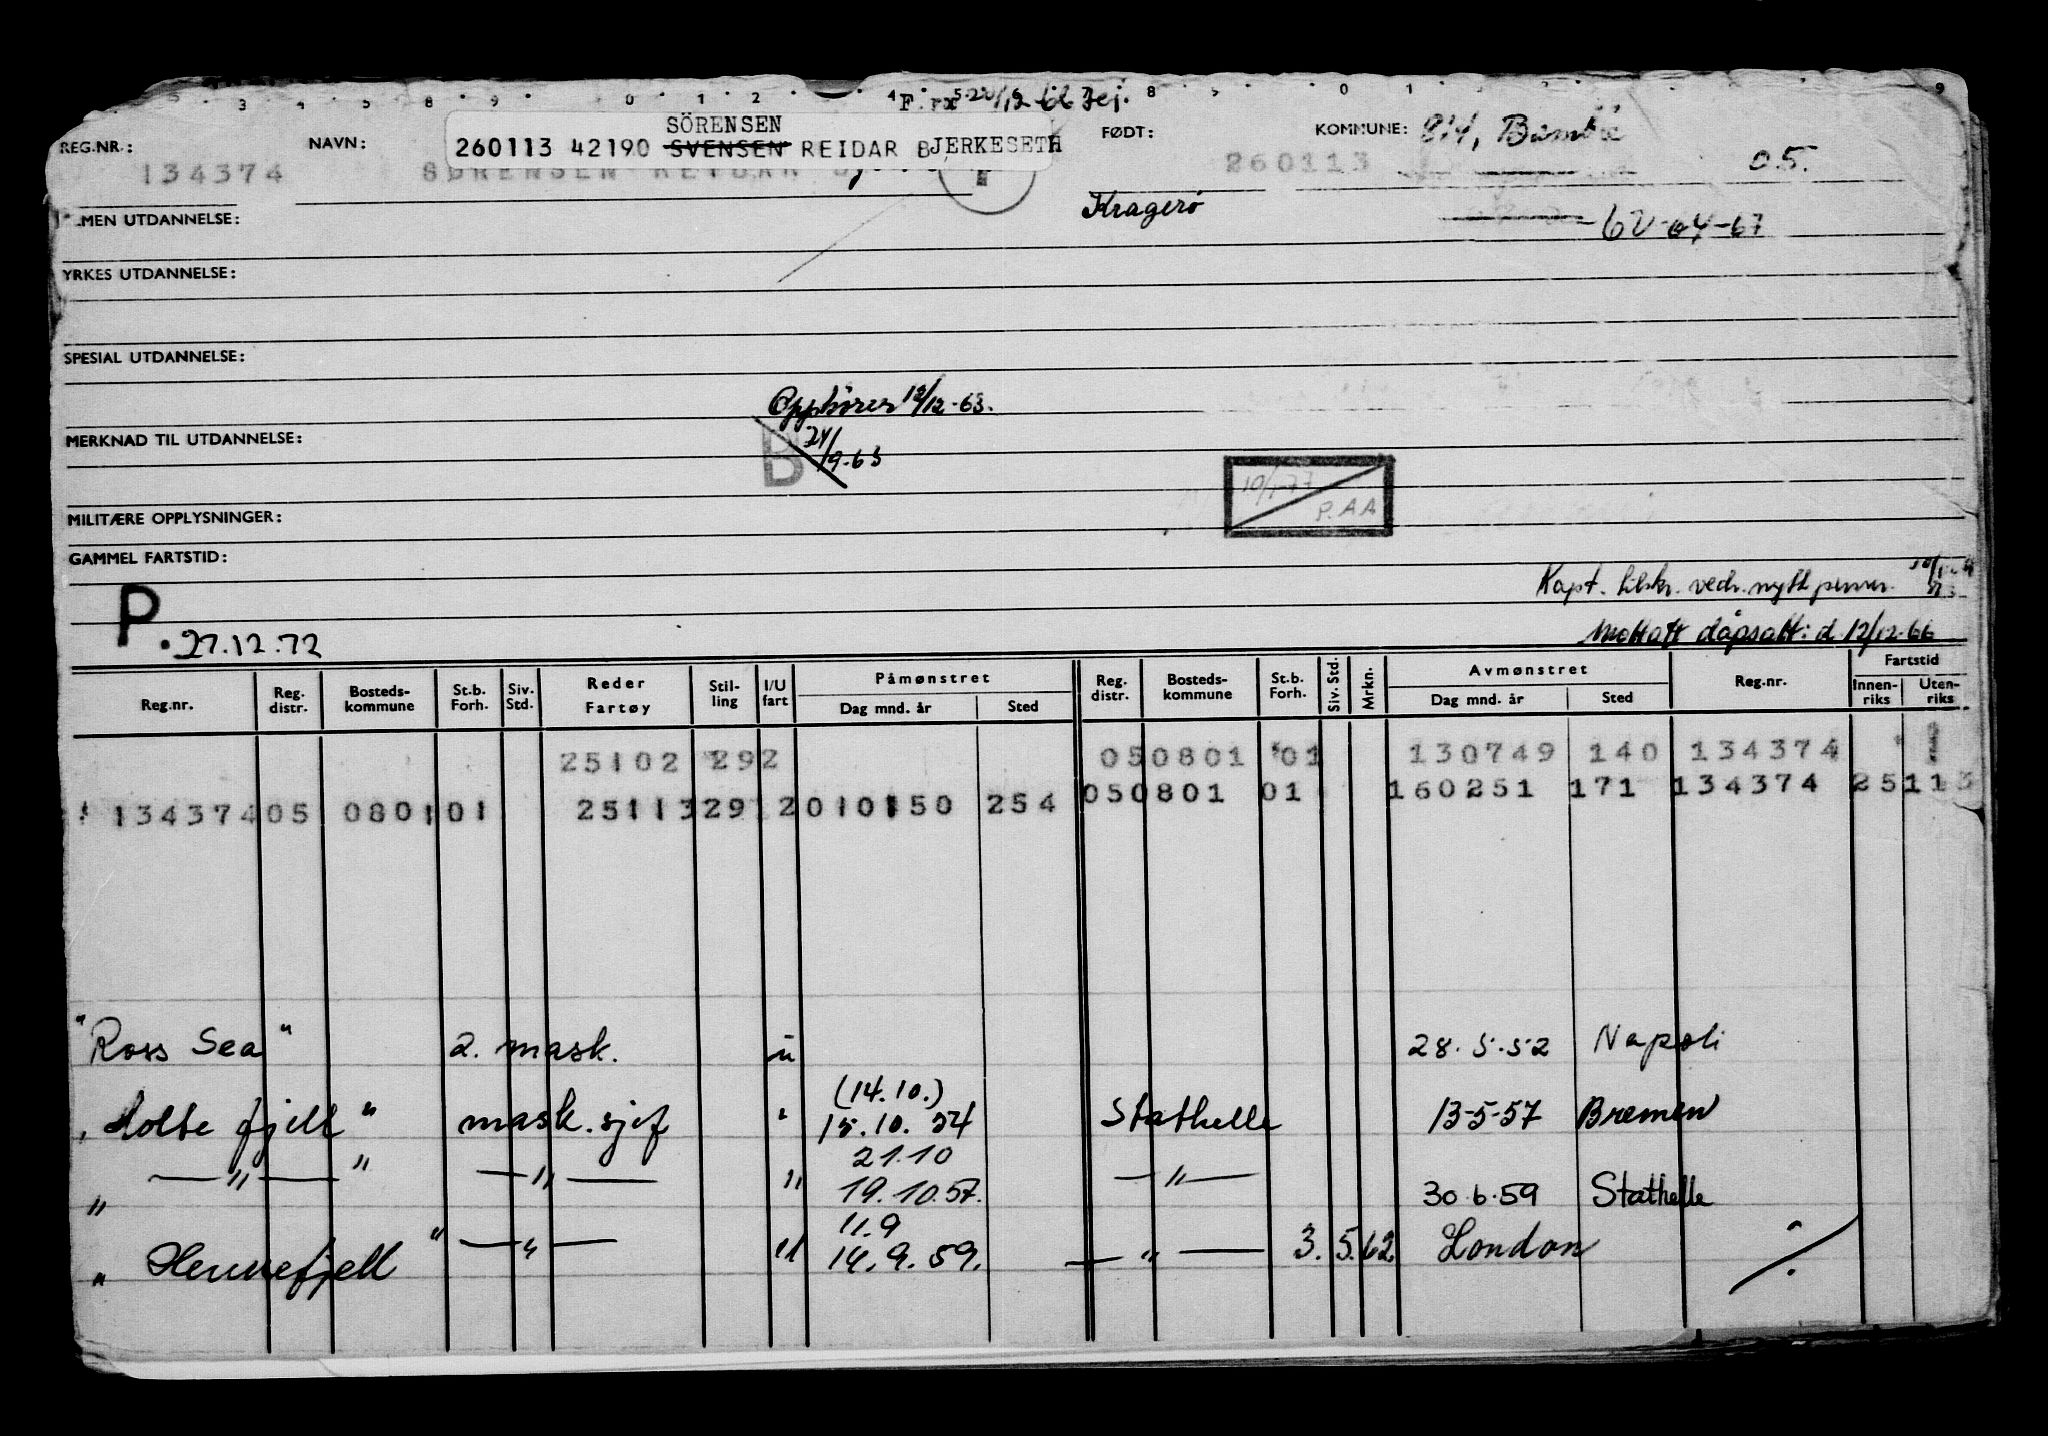 3 4 5 8 9 0 1 2 4 8 9 0 1 9
REG.NR.: NAVN: SÖRENSEN FØDT: KOMMUNE: 814, Bamble
260113 42190 SVENSEN REIDAR BJERKESETH
134374 SØRENSEN REIDAR 260113 05.
ALMEN UTDANNELSE: Kragerø 62-04-67
YRKES UTDANNELSE:
SPESIAL UTDANNELSE:
Opphører 12/12-63.
MERKNAD TIL UTDANNELSE: B 24/9-63
10/1-77 P.AA
MILITÆRE OPPLYSNINGER:
GAMMEL FARTSTID:
Kapt. tilskr. vedr. nytt
P. 27.12.72 Mottatt dåpsatt: d. 12/12-66
Reg.nr. Reg. distr. Bosteds-kommune St.b. Forh. Siv. Std. Reder Fartøy Stil-ling I/U fart Påmønstret Dag mnd. år Sted Reg. distr. Bosteds-kommune St.b. Forh. Siv. Std. Mrkn. Avmønstret Dag mnd. år Sted Reg.nr. Fartstid Innen-riks Uten-riks
25102 292 050801 01 130749 140 134374
134374 05 0801 01 25113 291 2 010150 254 050801 01 160251 171 134374 25113
"Ross Sea" 2. mask. u 28.5.52 Napoli
(14.10.)
"Holtefjell" mask.sjef " 15.10.54 Stathelle 13-5-57 Bremen
21.10
" —"— " —"— " 19.10.57. —"— 30.6.59 Stathelle
11.9
"Hennefjell" —"— " 14.9.59. —"— 3.5.62. London ./.